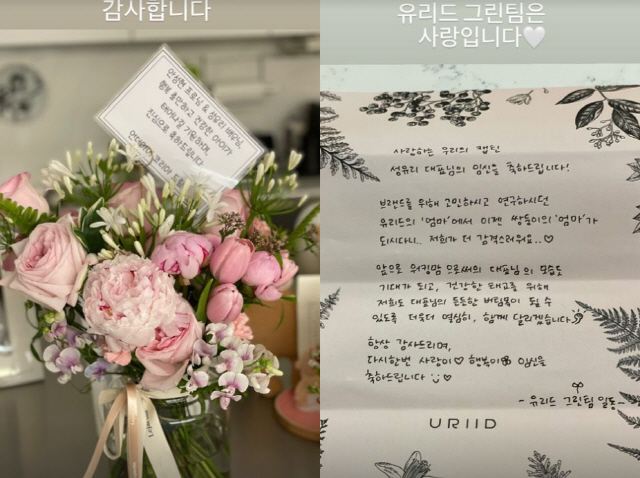 감사합니다
안성현 프로님 & 성유리 배우님,
행복 충만하고 건강한 아이가
태어나길 기원하며,
진심으로 축하드립니다
유리드 그린팀은
사랑입니다🤍
사랑하는 우리의 캡틴
성유리 대표님의 임신을 축하드립니다!
브랜드를 위해 고민하시고 연구하시던
유리드의 '엄마'에서 이젠 쌍둥이의 '엄마'가
되시다니.. 저희가 더 감격스러워요..♡
앞으로 워킹맘으로써의 대표님의 모습도
기대가 되고, 건강한 태교를 위해
저희도 대표님의 든든한 버팀목이 될 수
있도록 더욱더 열심히, 함께 달리겠습니다
항상 감사드리며,
다시한번 사랑이♡ 행복이 임신을
축하드립니다 ♡
- 유리드 그린팀 일동 -
URIID